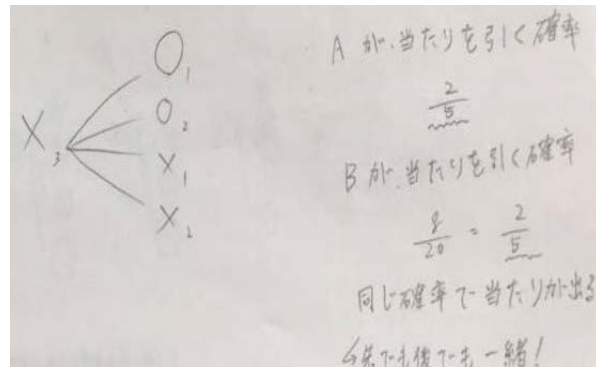 X₃
O₁
O₂
X₁
X₂
Aが、当たりを引く確率
2/5
Bが、当たりを引く確率
8/20 = 2/5
同じ確率で当たりが出る
↳先でも後でも一緒!